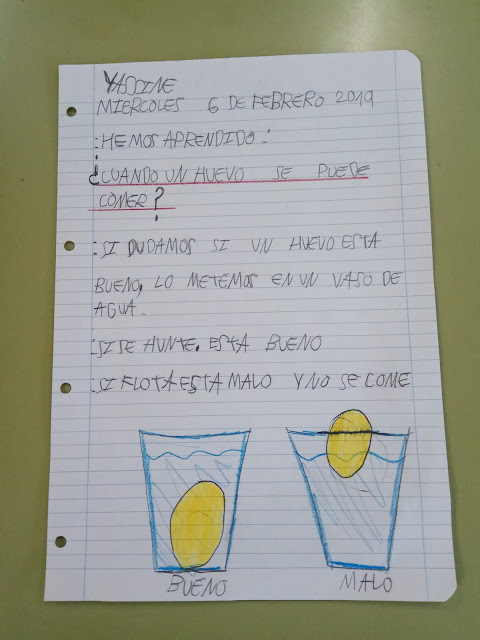 YASSINE
MIERCOLES 6 DE FEBRERO 2019
:HEMOS APRENDIDO:
¿CUANDO UN HUEVO SE PUEDE
COMER?
:SI DUDAMOS SI UN HUEVO ESTA
BUENO, LO METEMOS EN UN VASO DE
AGUA.
:SI SE HUNTE. ESTA BUENO
:SI FLOTA ESTA MALO Y NO SE COME
BUENO MALO